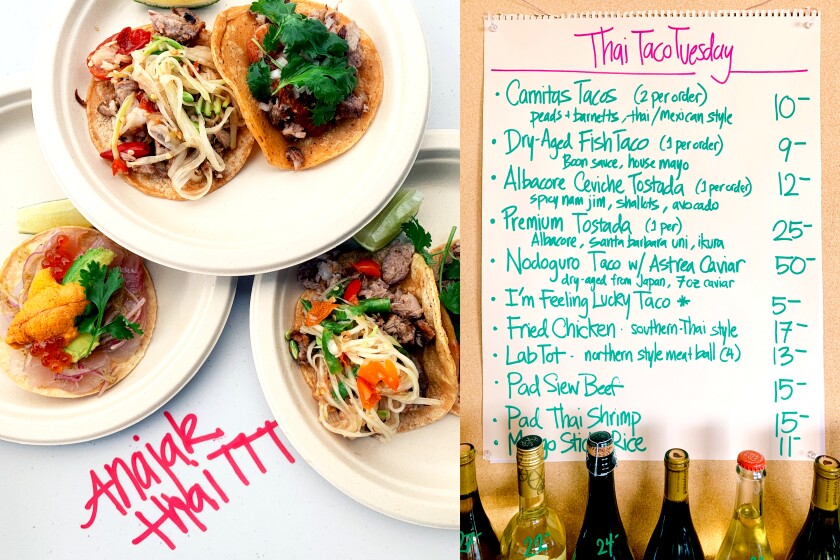 Anajak
thai TTT
Thai Taco Tuesday
• Carnitas Tacos (2 per order) 10-
peads + barnetts, thai/mexican style
• Dry-Aged Fish Taco (1 per order) 9-
Boon sauce, house mayo
• Albacore Ceviche Tostada (1 per order) 12-
spicy nam jim, shallots, avocado
• Premium Tostada (1 per) 25-
Albacore, Santa barbara uni, ikura
• Nodoguro Taco w/ Astrea Caviar 50-
dry-aged from Japan, 7oz caviar
• I'm Feeling Lucky Taco * 5-
• Fried Chicken · southern-Thai style 17-
• Lab Tot · northern style meat ball (4) 13-
• Pad Siew Beef 15-
• Pad Thai Shrimp 15-
Rice 11-
22-
24-